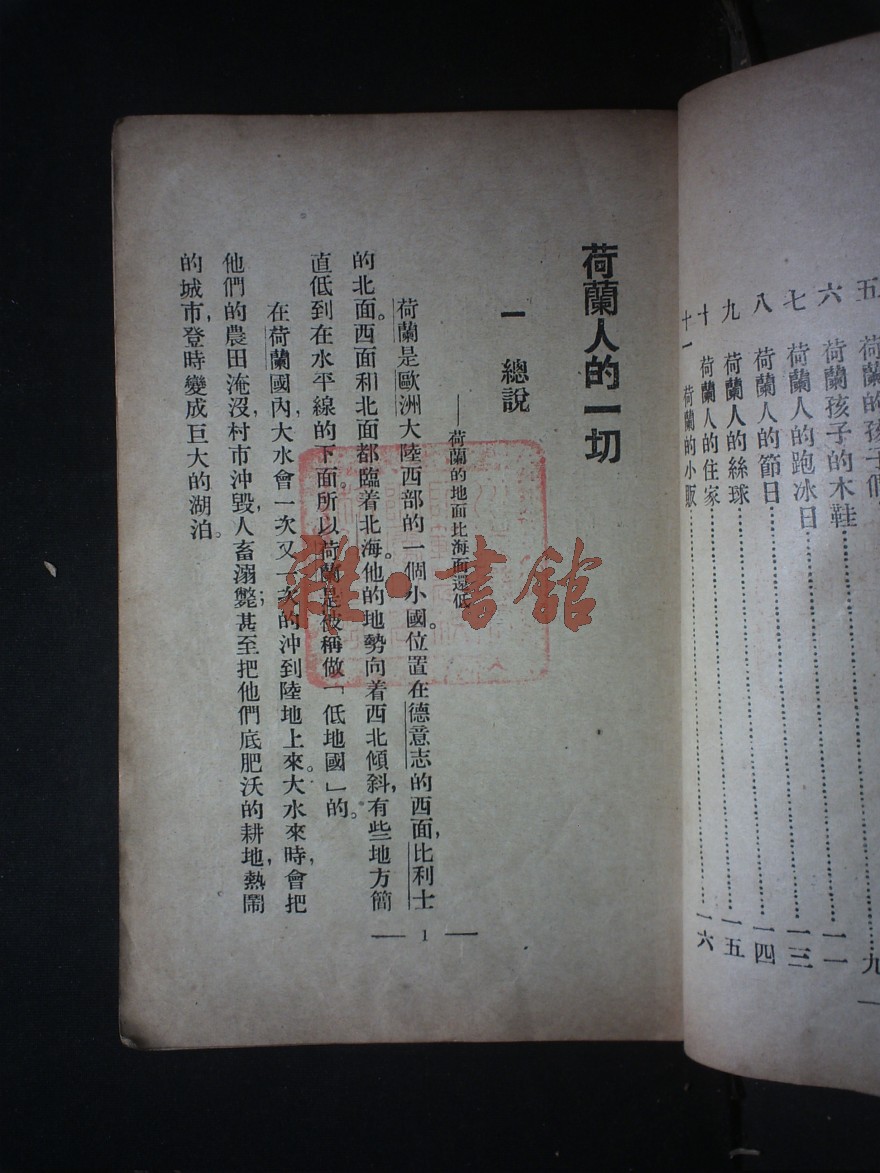 五 荷蘭的孩子們……九
六 荷蘭孩子的木鞋……一一
七 荷蘭人的跑冰日……一三
八 荷蘭人的節日……一四
九 荷蘭人的絲球……一五
十 荷蘭人的住家……一六
十一 荷蘭的小販……
荷蘭人的一切
一 總說
——荷蘭的地面比海面還低
荷蘭是歐洲大陸西部的一個小國。位置在德意志的西面,比利士
的北面。西面和北面都臨着北海。他的地勢向着西北傾斜,有些地方簡
直低到在水平線的下面。所以荷蘭是被稱做「低地國」的。
在荷蘭國內,大水會一次又一次的沖到陸地上來。大水來時,會把
他們的農田淹沒,村市沖毀,人畜溺斃;甚至把他們底肥沃的耕地,熱鬧
的城市,登時變成巨大的湖泊。
— 1 —
雜·書館